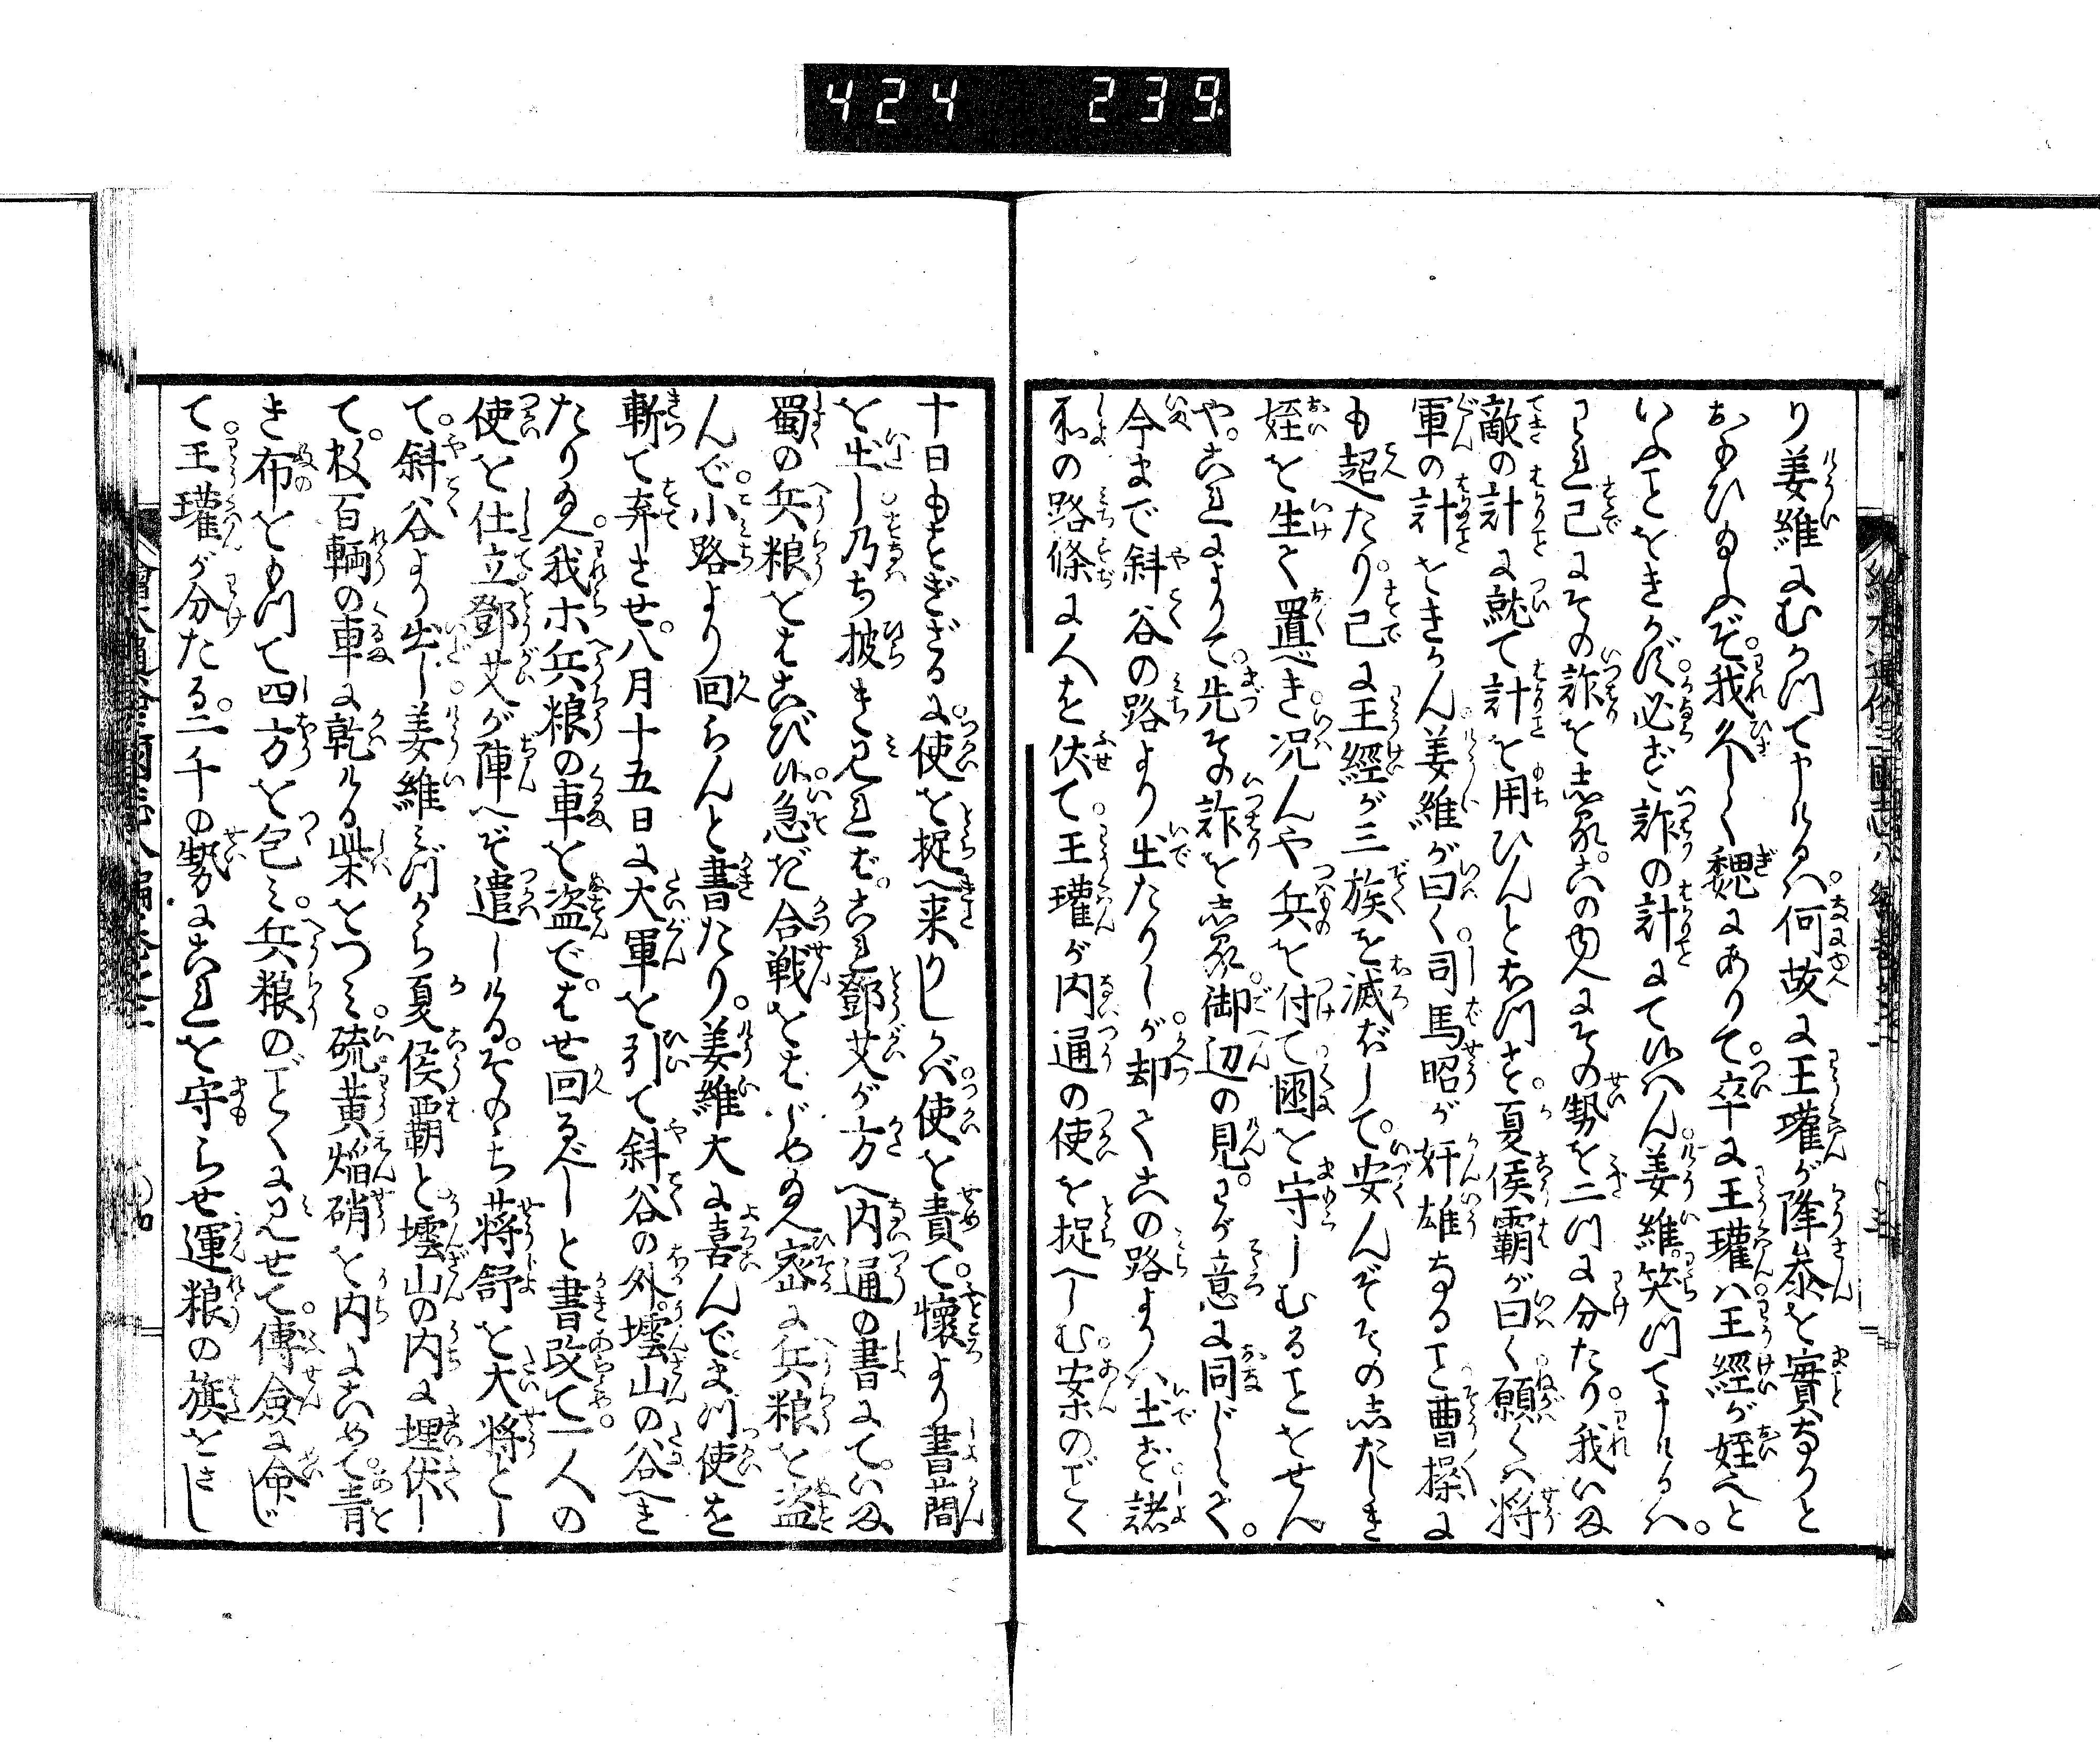 424 239
り姜維にむかつて申けるハ何故に王瓘が降参を實なりと
おもひ給ふぞ我久しく魏にありて卒に王瓘ハ王經が姪といふ
いふことをきかず必ず詐の計にて候はん姜維笑つて申けるハ
われ已にその詐を志る此ゆへにその勢を二つに分たり我いま
敵の計に就て計を用ひんとおつす夏侯覇が曰く願くハ将
軍の計をきかん姜維が曰く司馬昭が奸雄なること曹操に
も超たり已に王經が三族を滅ぼして安んぞその志たしき
姪を生て置べき况んや兵を付て國を守しむることをせん
や此によりて先その詐を志る御辺の見わが意に同じくぞ
今まで斜谷の路より出たりしが却て此の路よりハ出ず諸
和の路條に人を伏て王瓘が内通の使を捉へしむ案のごとく
十日もすぎざるに使を捉へ来りしかば使を責て懐より書簡
を出し乃ち披き見れば此鄧艾が方へ内通の書にていま
蜀の兵粮をはこび候急だ合戦をはじめ給へ密に兵粮を盗
んで小路より回らんと書たり姜維大に喜んでまづ使を
斬て弃させ八月十五日に大軍を引て斜谷の外壜山の谷へき
たり給へ我ホ兵粮の車を盗ではせ回るべしと書改て一人の
使を仕立鄧艾が陣へぞ遣しけるそのゝち蒋舒を大将とし
て斜谷より出し姜維ミづから夏侯覇と壜山の内に埋伏し
て数百輌の車に乾ける柴をつミ硫黄焔硝を内にこめて青
き布をもつて四方を包ミ兵粮のごとくに見せて傅僉に命じ
て王瓘が分たる二千の勢にこれを守らせ運粮の旗をさし